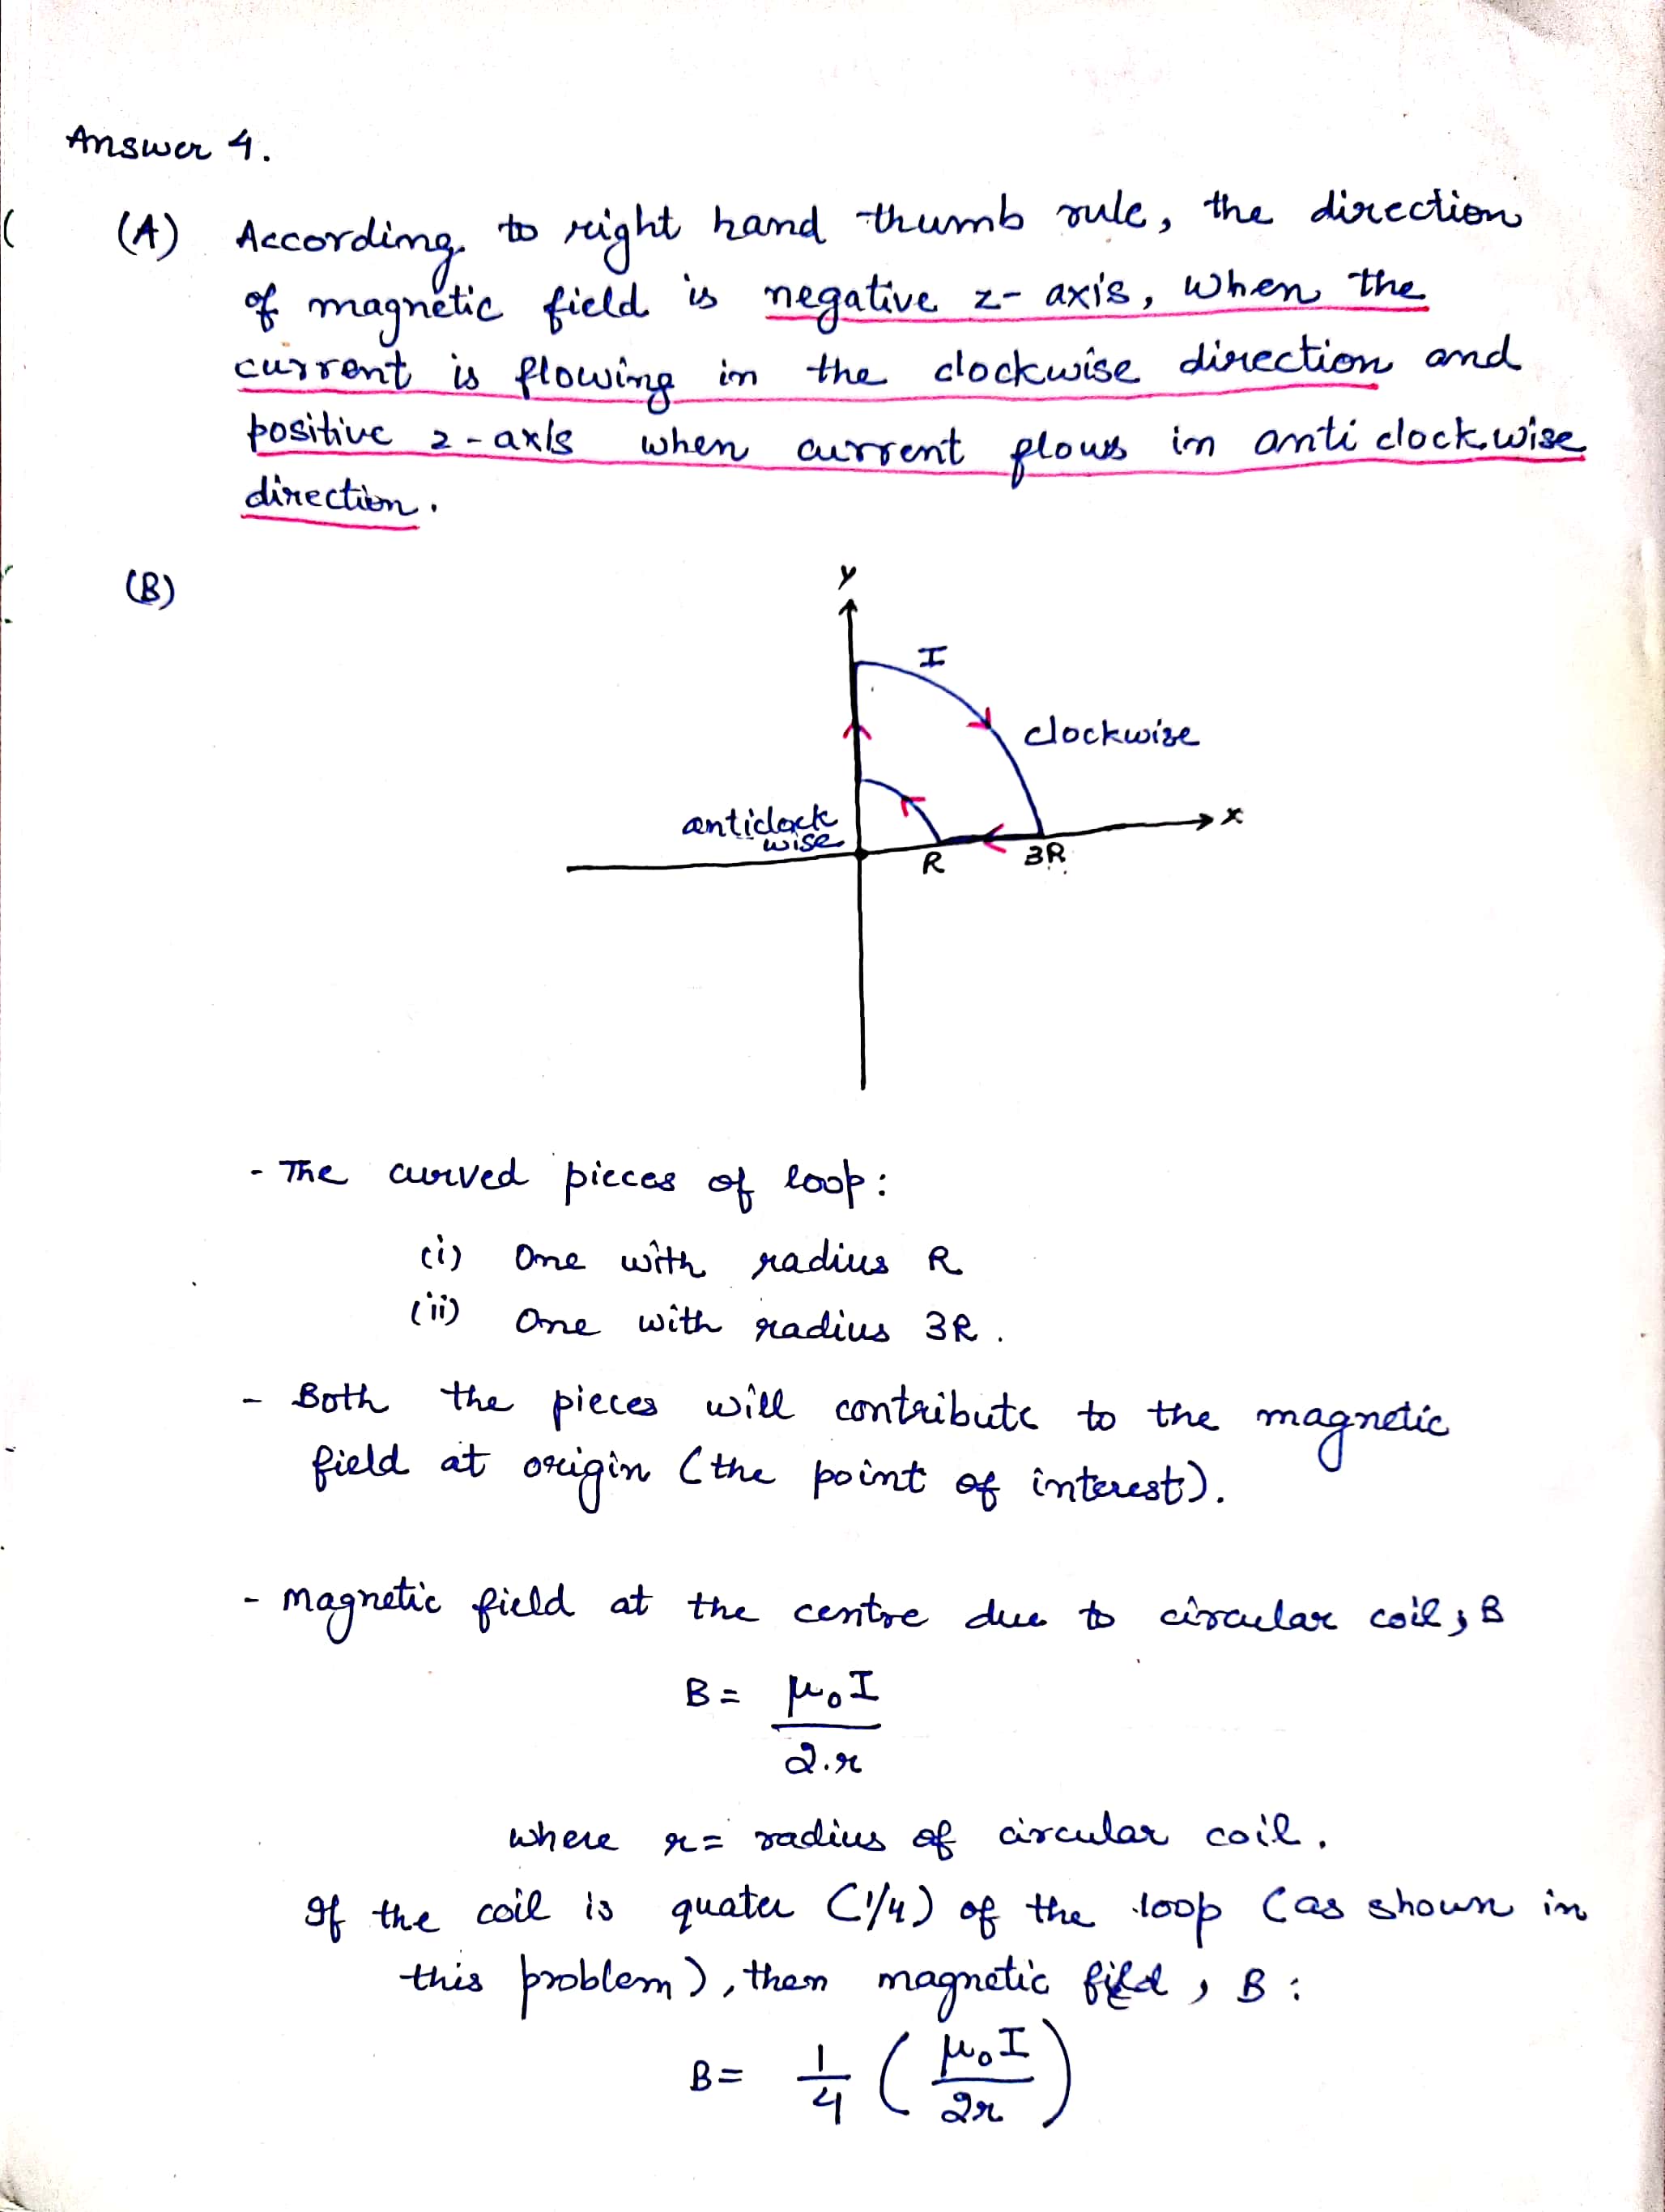 Answer 4.
(A) According to right hand thumb rule, the direction
of magnetic field is negative z-axis, when the
current is flowing in the clockwise direction and
positive z-axis when current flows in anti clockwise
direction.
(B)
y
I
clockwise
anticlock
wise
x
R
3R
- The curved pieces of loop:
(i) One with radius R
(ii) One with radius 3R.
- Both the pieces will contribute to the magnetic
field at origin (the point of interest).
- Magnetic field at the centre due to circular coil, B
B = μ₀I / 2.r
where r = radius of circular coil.
If the coil is quater (1/4) of the loop (as shown in
this problem), then magnetic field, B:
B = 1/4 (μ₀I / 2r)